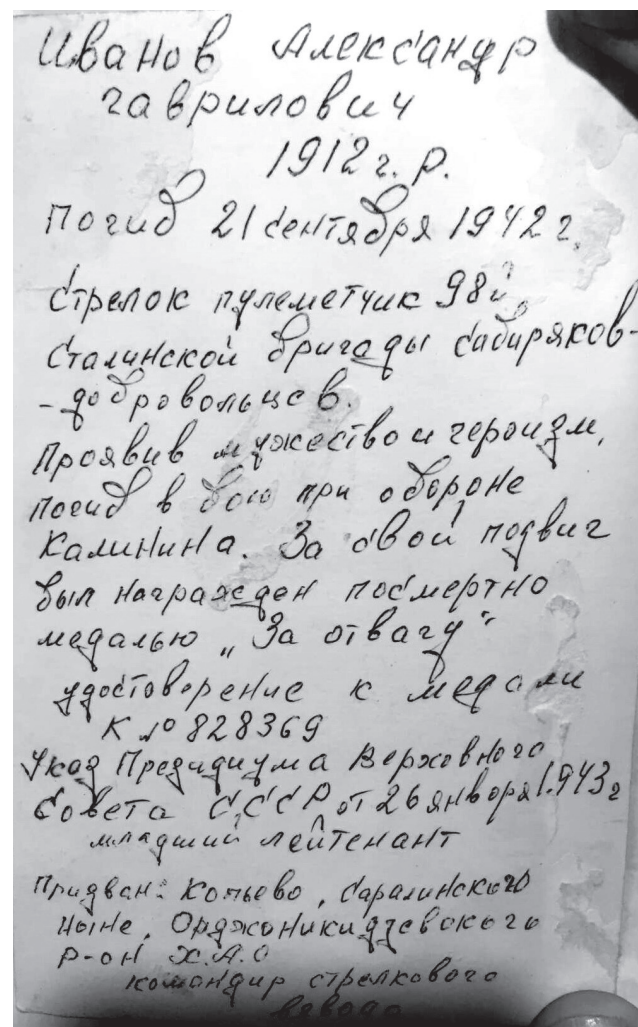 Иванов Александр
гаврилович
1912 г. р.
Погиб 21 сентября 1942 г.
Стрелок пулеметчик 98й
Сталинской бригады сабиряков-
- добровольцев.
Проявив мужество и героизм,
погиб в бою при обороне
Калинина. За свой подвиг
был награжден посмертно
медалью „За отвагу"
удостоверение к медали
К № 828369
Указ Президиума Верховного
Совета СССР от 26 января 1.943 г
младший лейтенант
Призван: Копьево, Саралинского
ныне, Орджоникидзевского
р-он Х.А.О
командир стрелкового
взвода